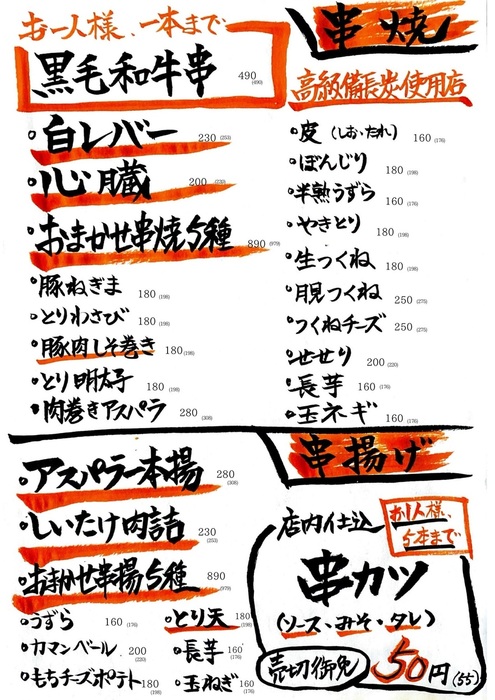 串焼
高級備長炭使用店
お一人様、一本まで
黒毛和牛串 490 (490)
白レバー 230 (253)
心臓 200 (220)
おまかせ串焼5種 890 (979)
豚ねぎま 180 (198)
とりわさび 180 (198)
豚肉しそ巻き 180 (198)
とり明太子 180 (198)
肉巻きアスパラ 280 (308)
皮(しお・たれ) 160 (176)
ぼんじり 180 (198)
半熟うずら 160 (176)
やきとり 180 (198)
生つくね 180 (198)
月見つくね 250 (275)
つくねチーズ 250 (275)
せせり 200 (220)
長芋 160 (176)
玉ネギ 160 (176)
串揚げ
アスパラ一本揚 280 (308)
しいたけ肉詰 230 (253)
おまかせ串揚5種 890 (979)
うずら 160 (176)
カマンベール 200 (220)
もちチーズポテト 180 (198)
とり天 180 (198)
長芋 160 (176)
玉ねぎ 160 (176)
お1人様、
5本まで
店内仕込
串カツ
(ソース、みそ・タレ)
売切御免 50円 (55)